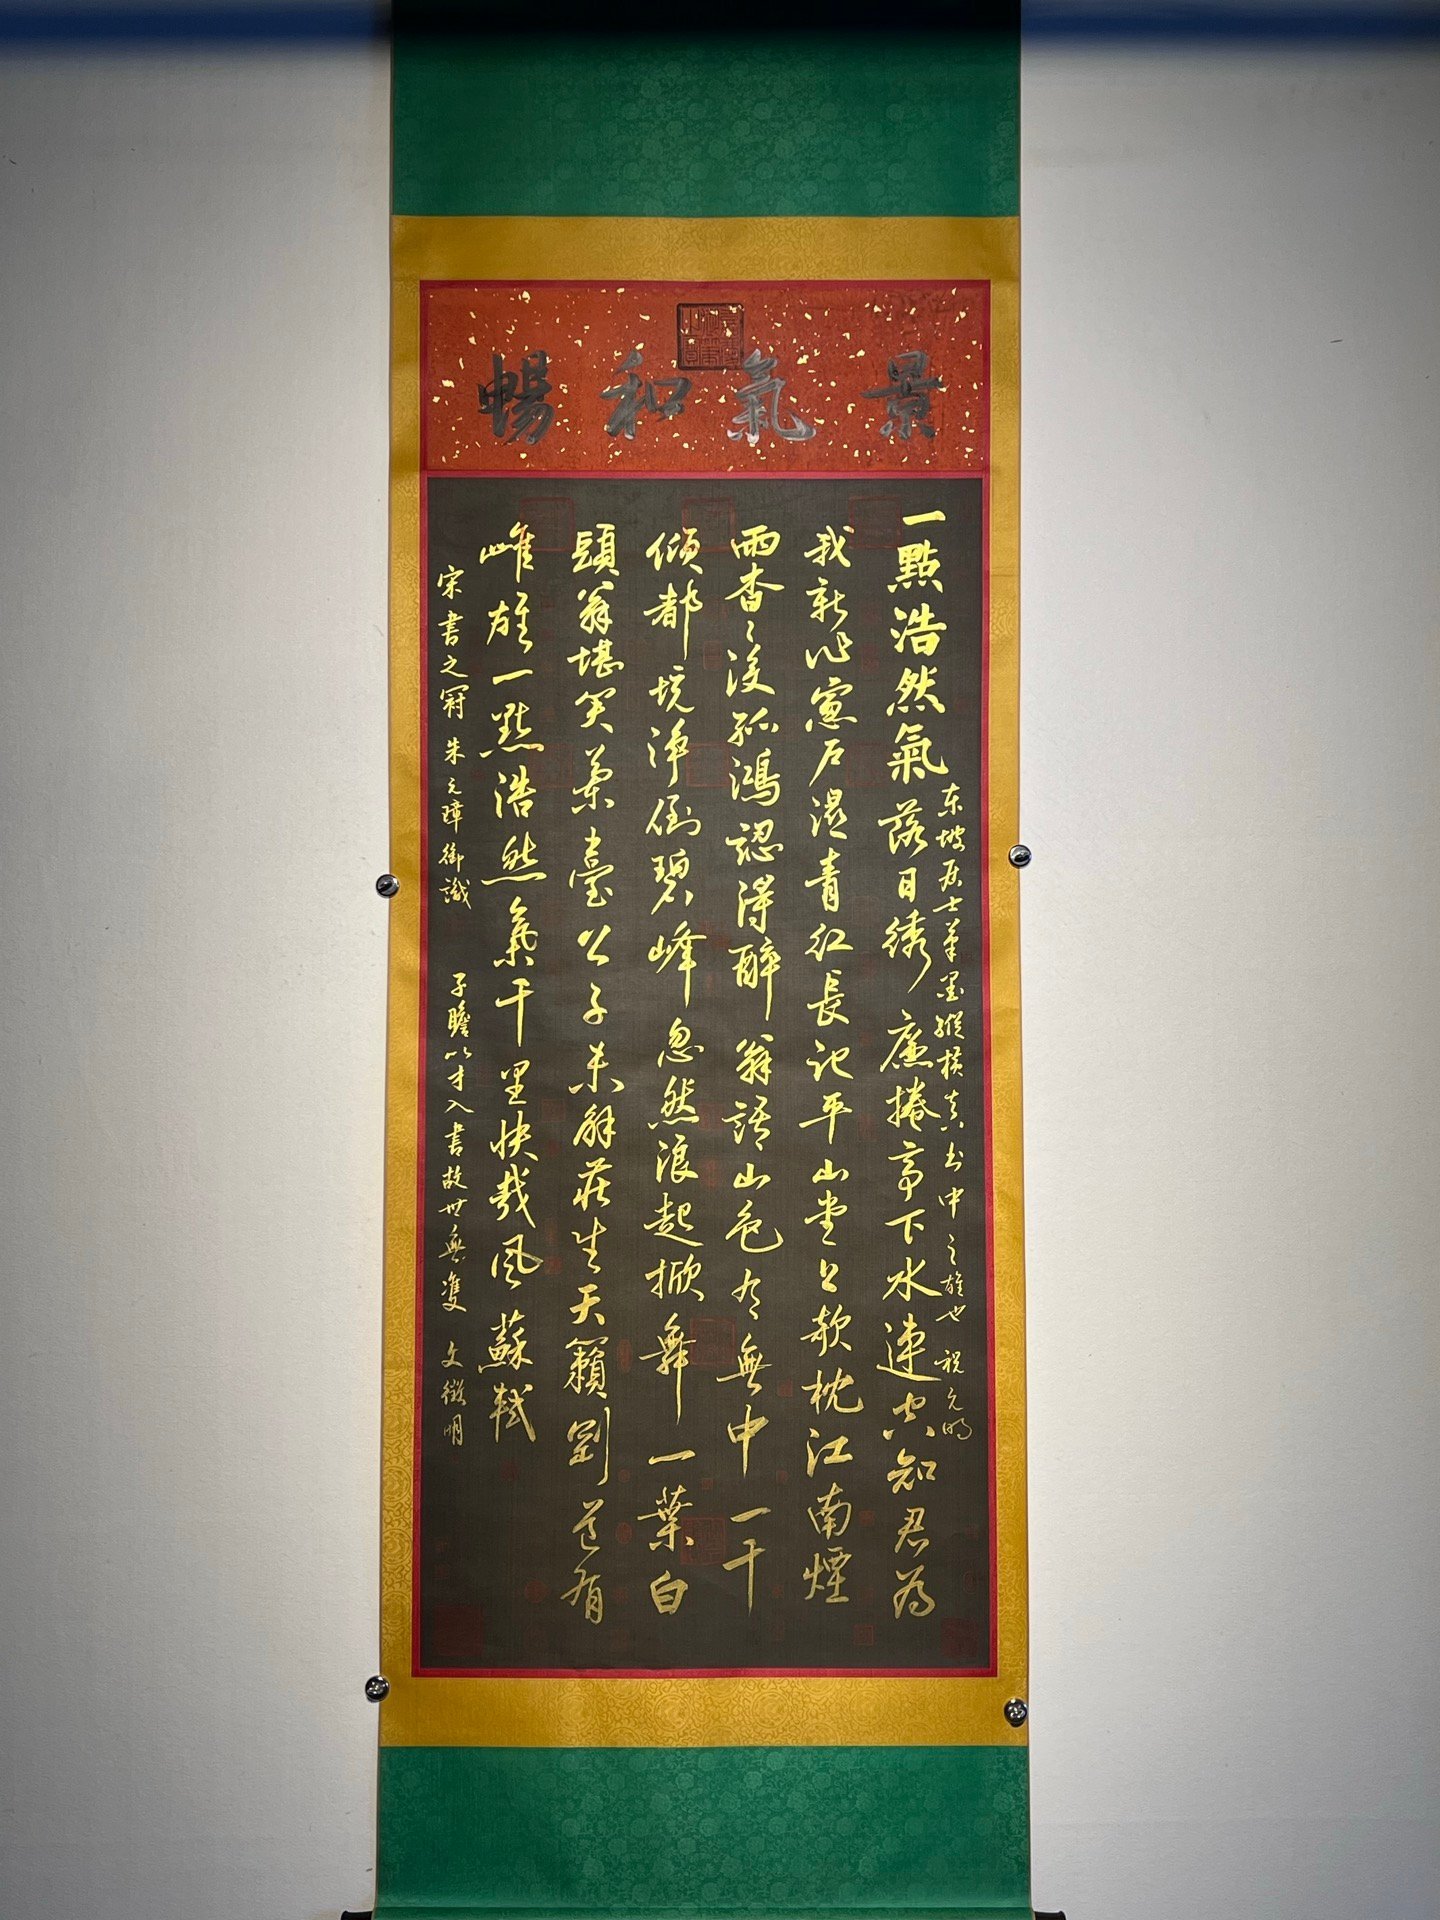 景氣和暢
东坡居士筆墨縱橫真書中之雄也 祝允明
一點浩然氣 落日綉簾捲亭下水連空知君為
我新作窓戶濕青紅長記平山堂上欹枕江南煙
雨杳〻沒孤鴻認得醉翁語山色有無中一千
傾都鏡淨倒碧峰忽然浪起掀舞一葉白
頭翁堪笑蘭臺公子未解莊生天籟剛道有
雌雄一點浩然氣千里快哉風 蘇軾
宋書之冠 朱元璋御識
子瞻以才入書故世無雙 文徵明